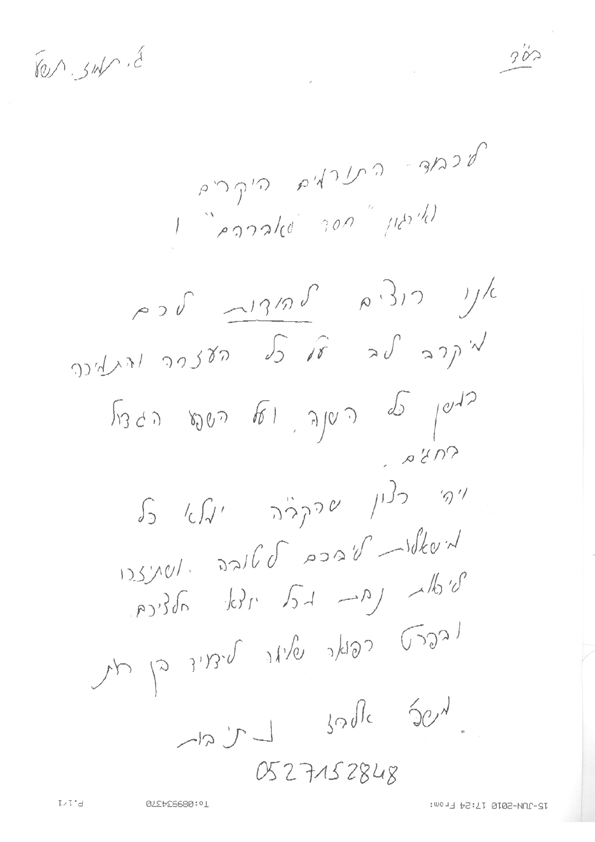 בס"ד
ג'. תמוז. תש"ע
לכבוד התורמים היקרים
ואירגון "חסד מאברהם" ו
אנו רוצים להודות לכם
מיקרב לב על כל העזרה והתמיכה
במשך כל השנה, ועל השפע הגדול
בחגים.
ויהי רצון שהקב"ה ימלא כל
מישאלות ליבכם לטובה. ושתיזכו
לראות נחת מכל יוצאי חלציכם
ובפרט רפואה שלימה לידיד בן רות
משפ' אלרז נתיבות
0527152848
15-JUN-2010 17:24 From: To:089934370 P.1/1